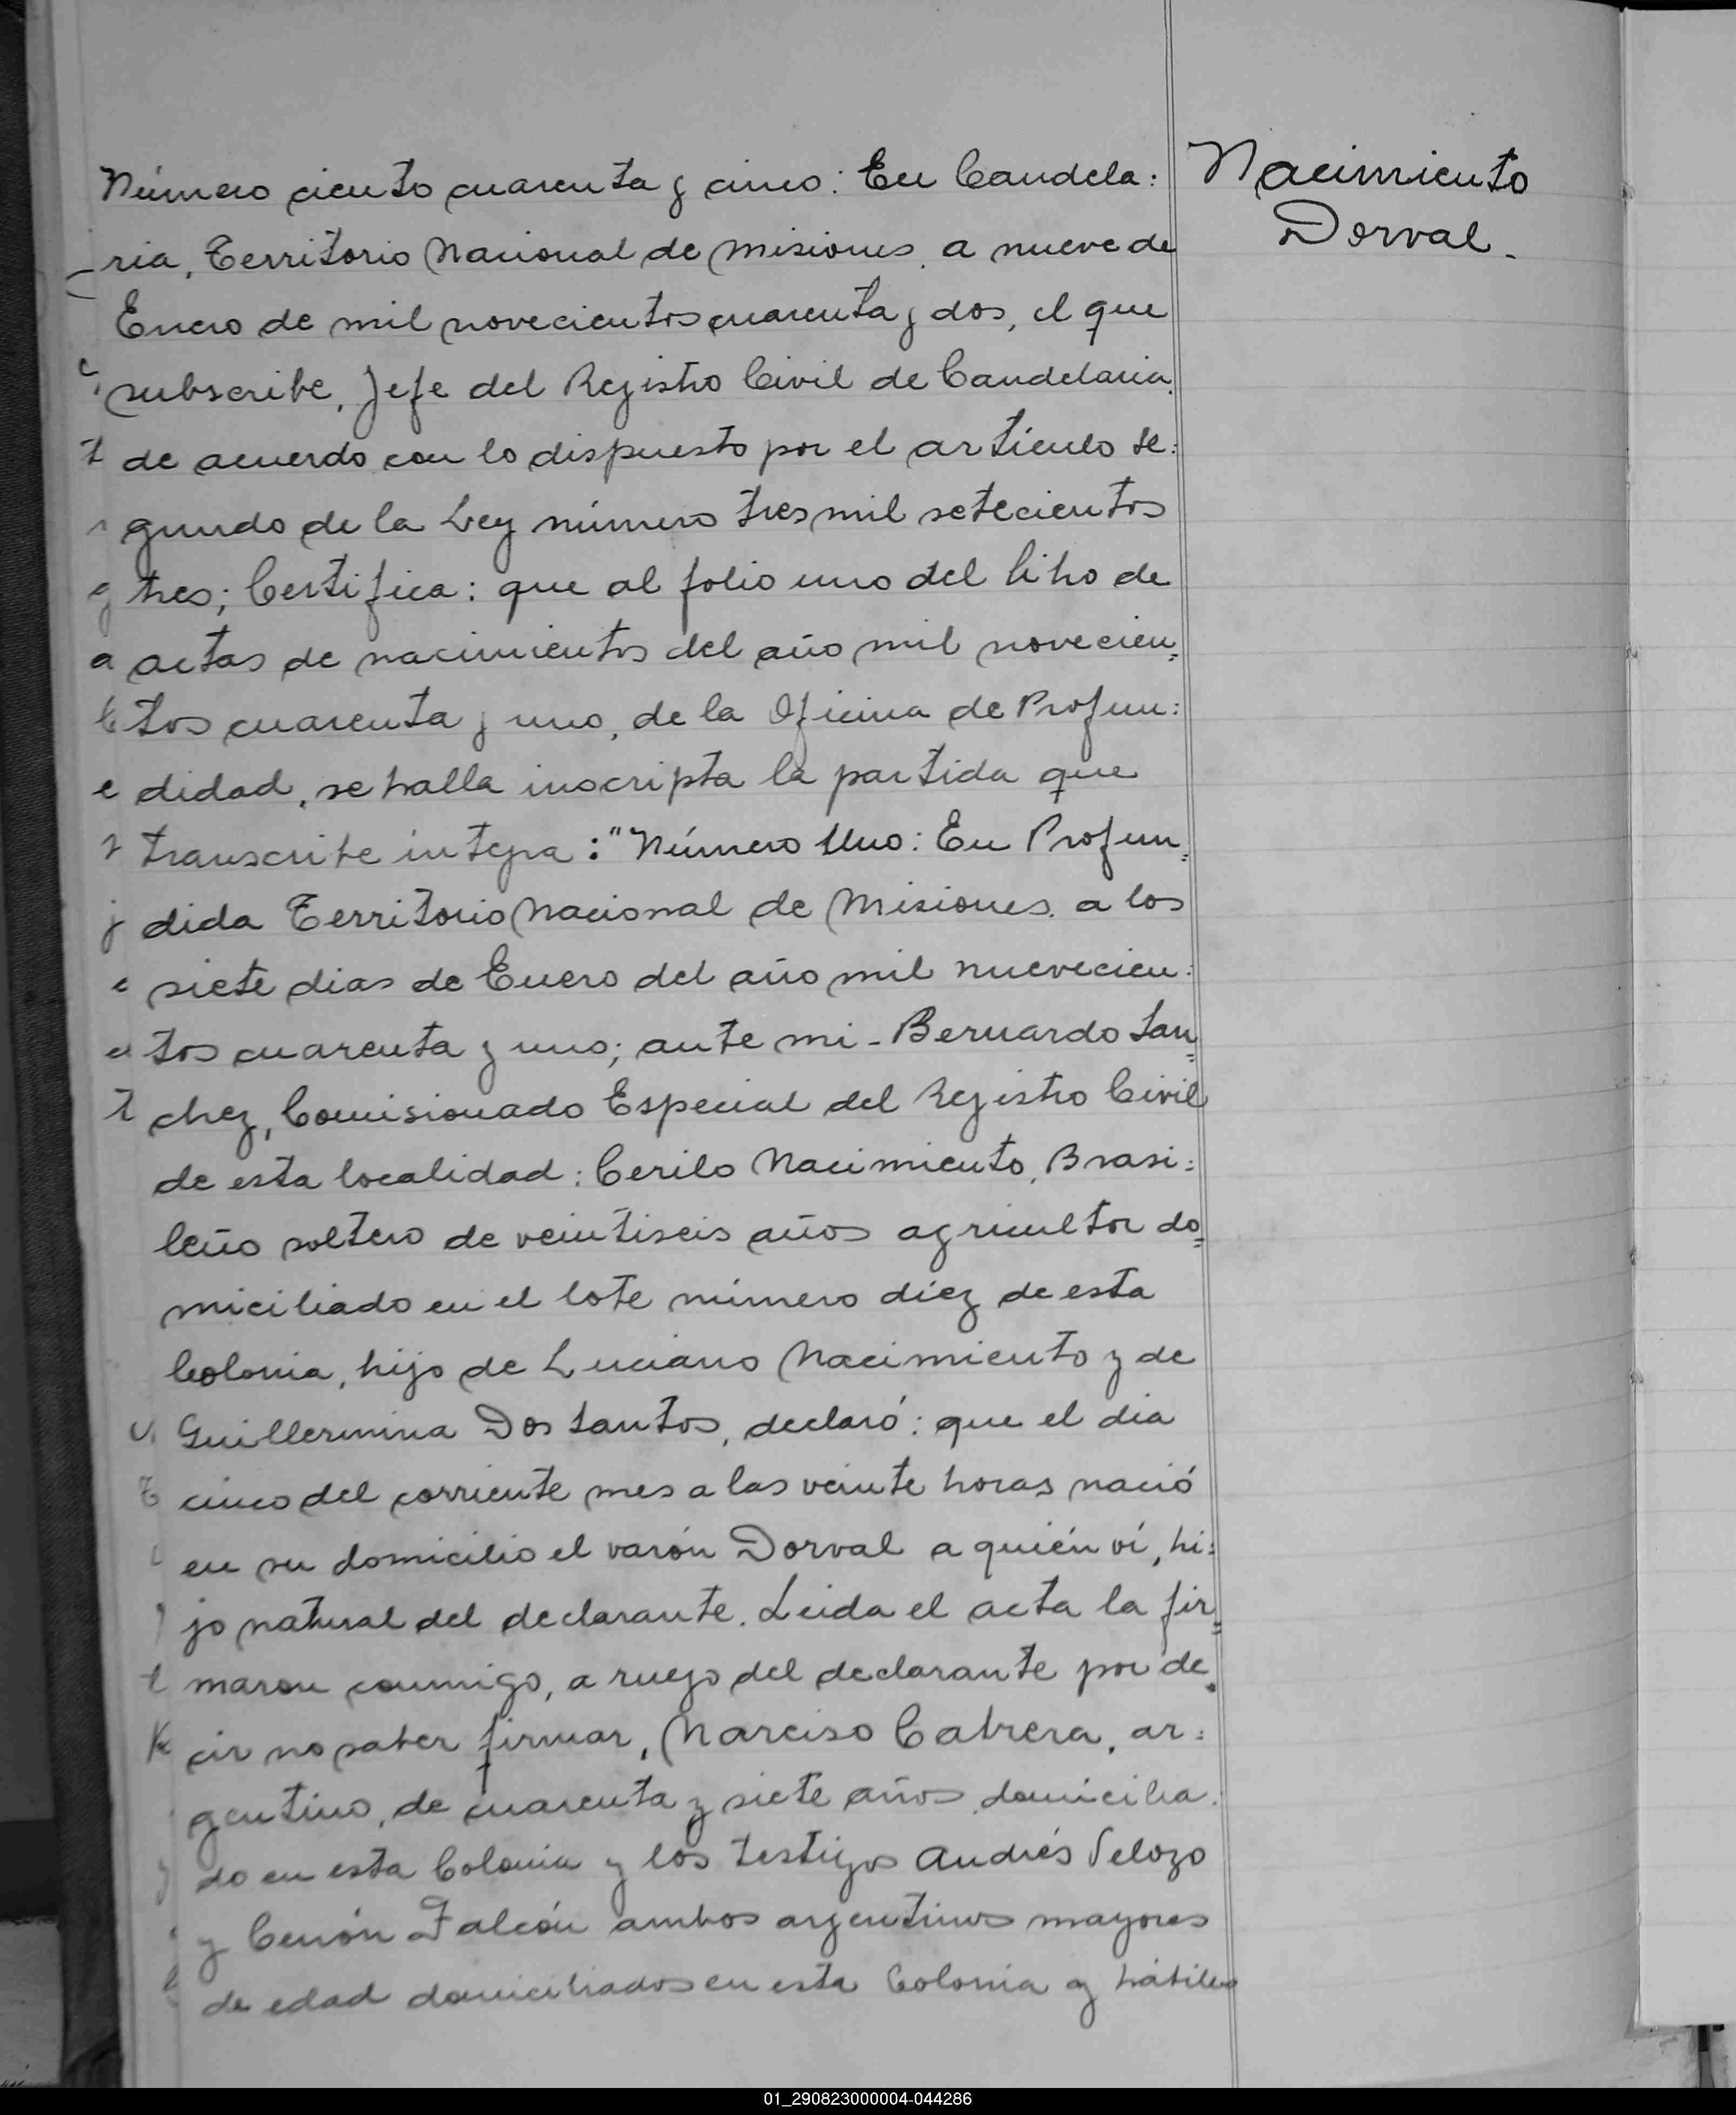 Número ciento cuarenta y cinco: En Candela:
ria, Territorio Nacional de Misiones, a nueve de
Enero de mil novecientos cuarenta y dos, el que
subscribe, Jefe del Registro Civil de Candelaria,
de acuerdo con lo dispuesto por el artículo se:
gundo de la Ley número tres mil setecientos
tres; Certifica: que al folio uno del libro de
actas de nacimientos del año mil novecien=
tos cuarenta y uno, de la Oficina de Profun:
didad, se halla inscripta la partida que
transcribe integra: "Número Uno: En Profun=
dida Territorio Nacional de Misiones, a los
siete dias de Enero del año mil nuevecien:
tos cuarenta y uno; ante mi - Bernardo San=
chez, Comisionado Especial del Registro Civil
de esta localidad: Cerilo Nacimiento, Brasi:
leño soltero de veintiseis años agricultor do=
miciliado en el lote número diez de esta
Colonia, hijo de Luciano Nacimiento y de
Guillermina Dos Santos, declaró: que el dia
cinco del corriente mes a las veinte horas nació
en su domicilio el varón Dorval a quién ví, hi:
jo natural del declarante. Leida el acta la fir=
maron conmigo, a ruego del declarante por de
cir no saber firmar, Narciso Cabrera, ar:
gentino, de cuarenta y siete años, domicilia:
do en esta Colonia y los testigos Andrés Velozo
y Cenón Falcón ambos argentinos mayores
de edad domiciliados en esta Colonia y hábiles
Nacimiento
Dorval.
01_290823000004-044286